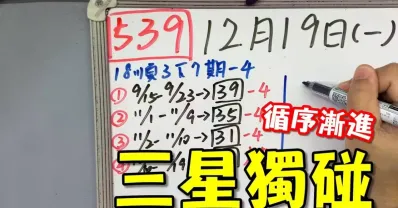 539 12月19日(一)
18順3下7期-4
① 9/15-9/23→39-4
② 11/1-11/9→35-4
③ 11/2-11/10→31-4
循序漸進
三星獨碰